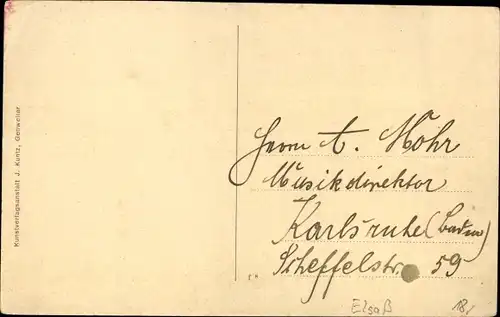 Kunstverlagsanstalt J. Kuntz, Gebweiler
Herrn A. Mohr
Musikdirektor
Karlsruhe (Baden)
Scheffelstr. 59
Elsaß
18/